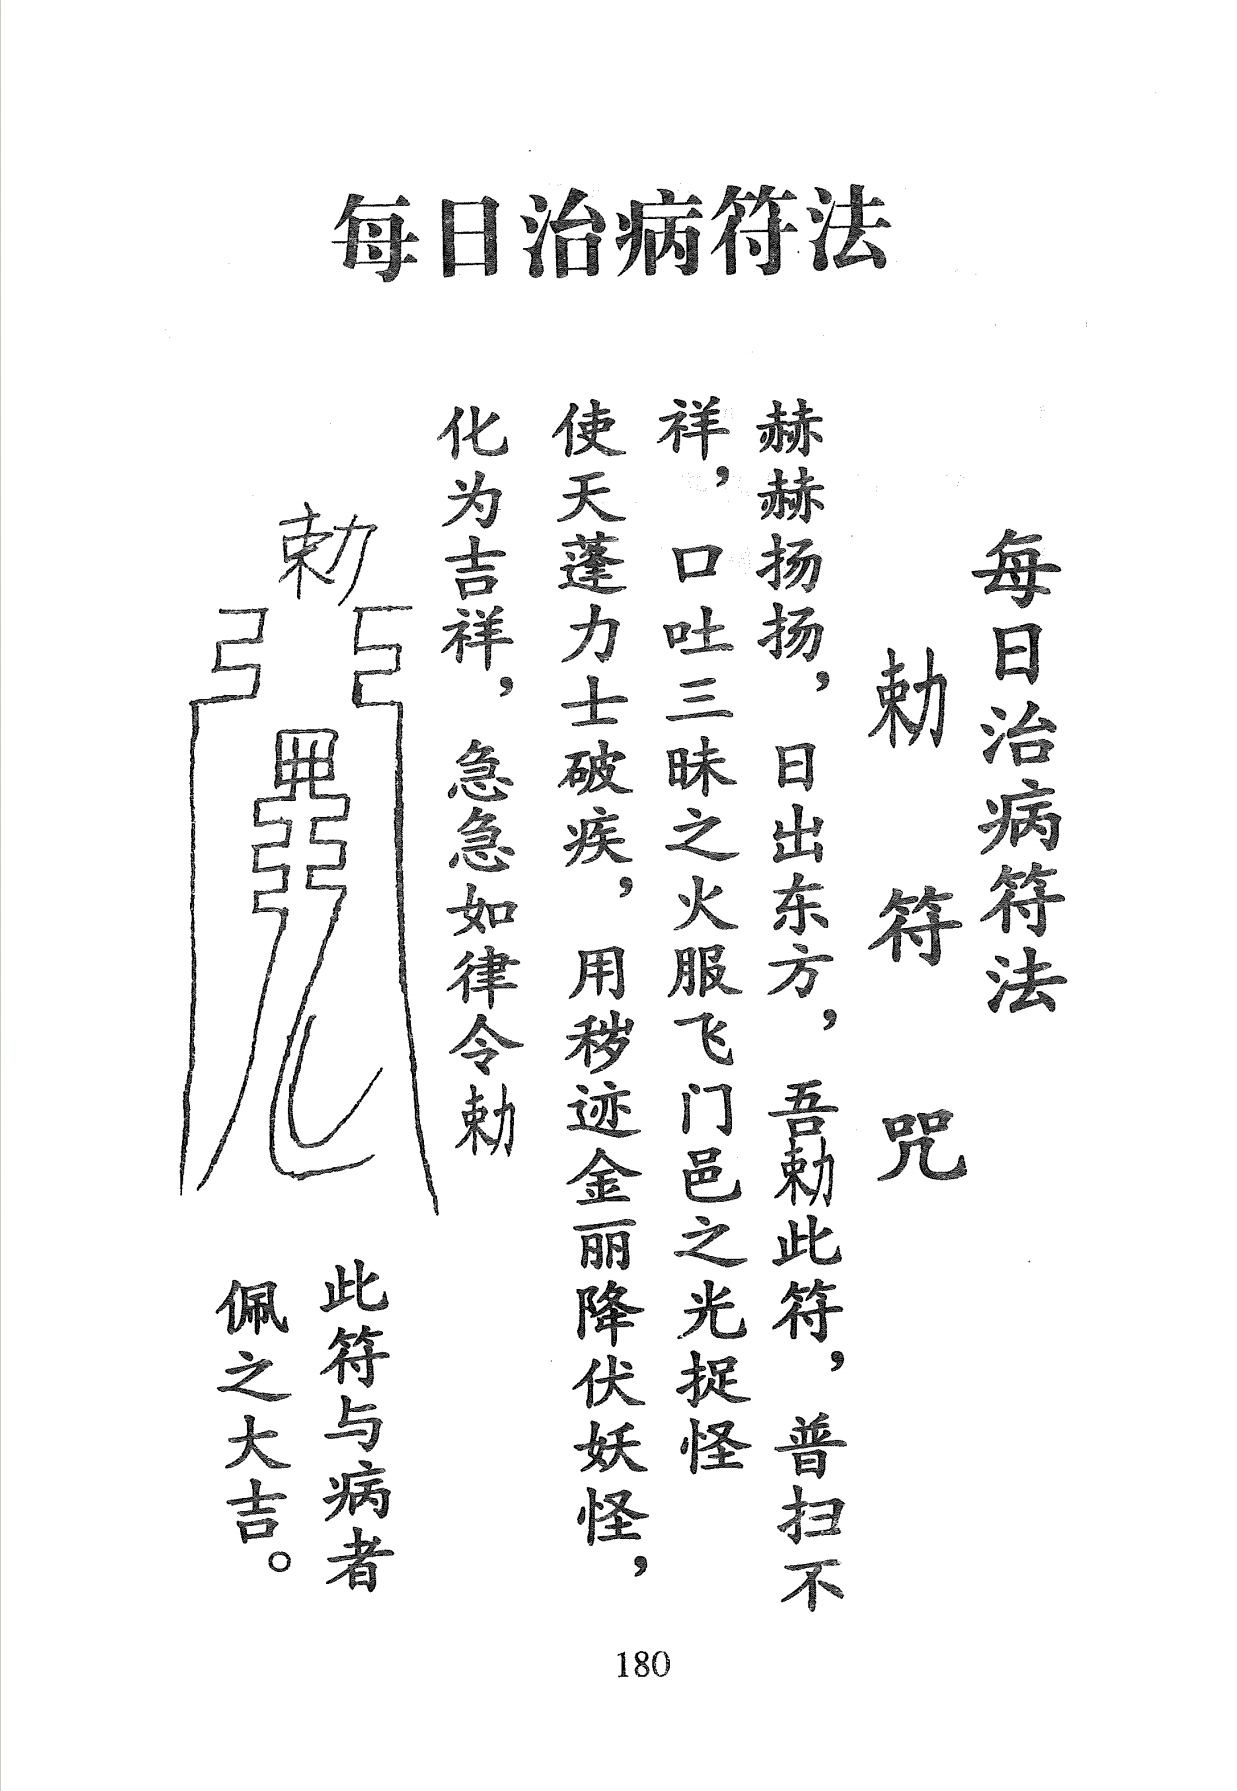 每日治病符法
每日治病符法
勅符咒
赫赫扬扬，日出东方，吾勅此符，普扫不
祥，口吐三昧之火服飞门邑之光捉怪
使天蓬力士破疾，用秽迹金丽降伏妖怪，
化为吉祥，急急如律令勅
勅
此符与病者
佩之大吉。
180